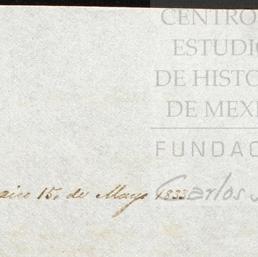 CENTRO
ESTUDIO
DE HISTO
DE MEX
FUNDAC
15, de Mayo 1833
Carlos